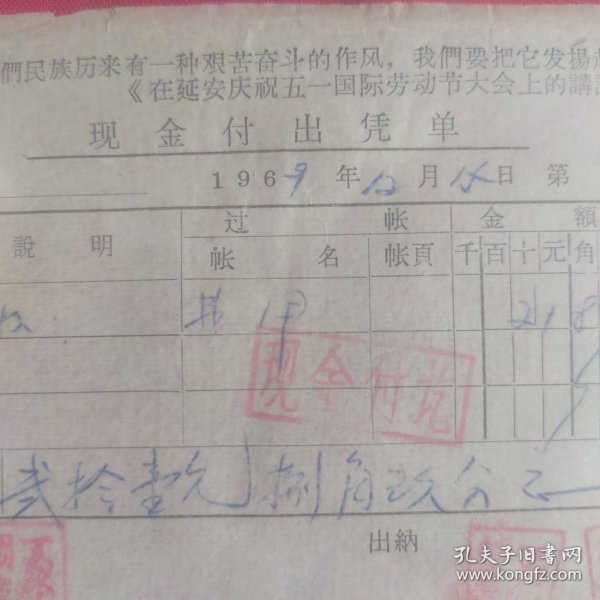 們民族历来有一种艰苦奋斗的作风，我們要把它发揚
《在延安庆祝五一国际劳动节大会上的講
现金付出凭单
1969年12月15日 第
說明 过帐 金額
帐名 帐頁 千百十元角
21 8
现金付讫
贰拾壹元捌角玖分正
出納
孔夫子旧书网
www.kongfz.com